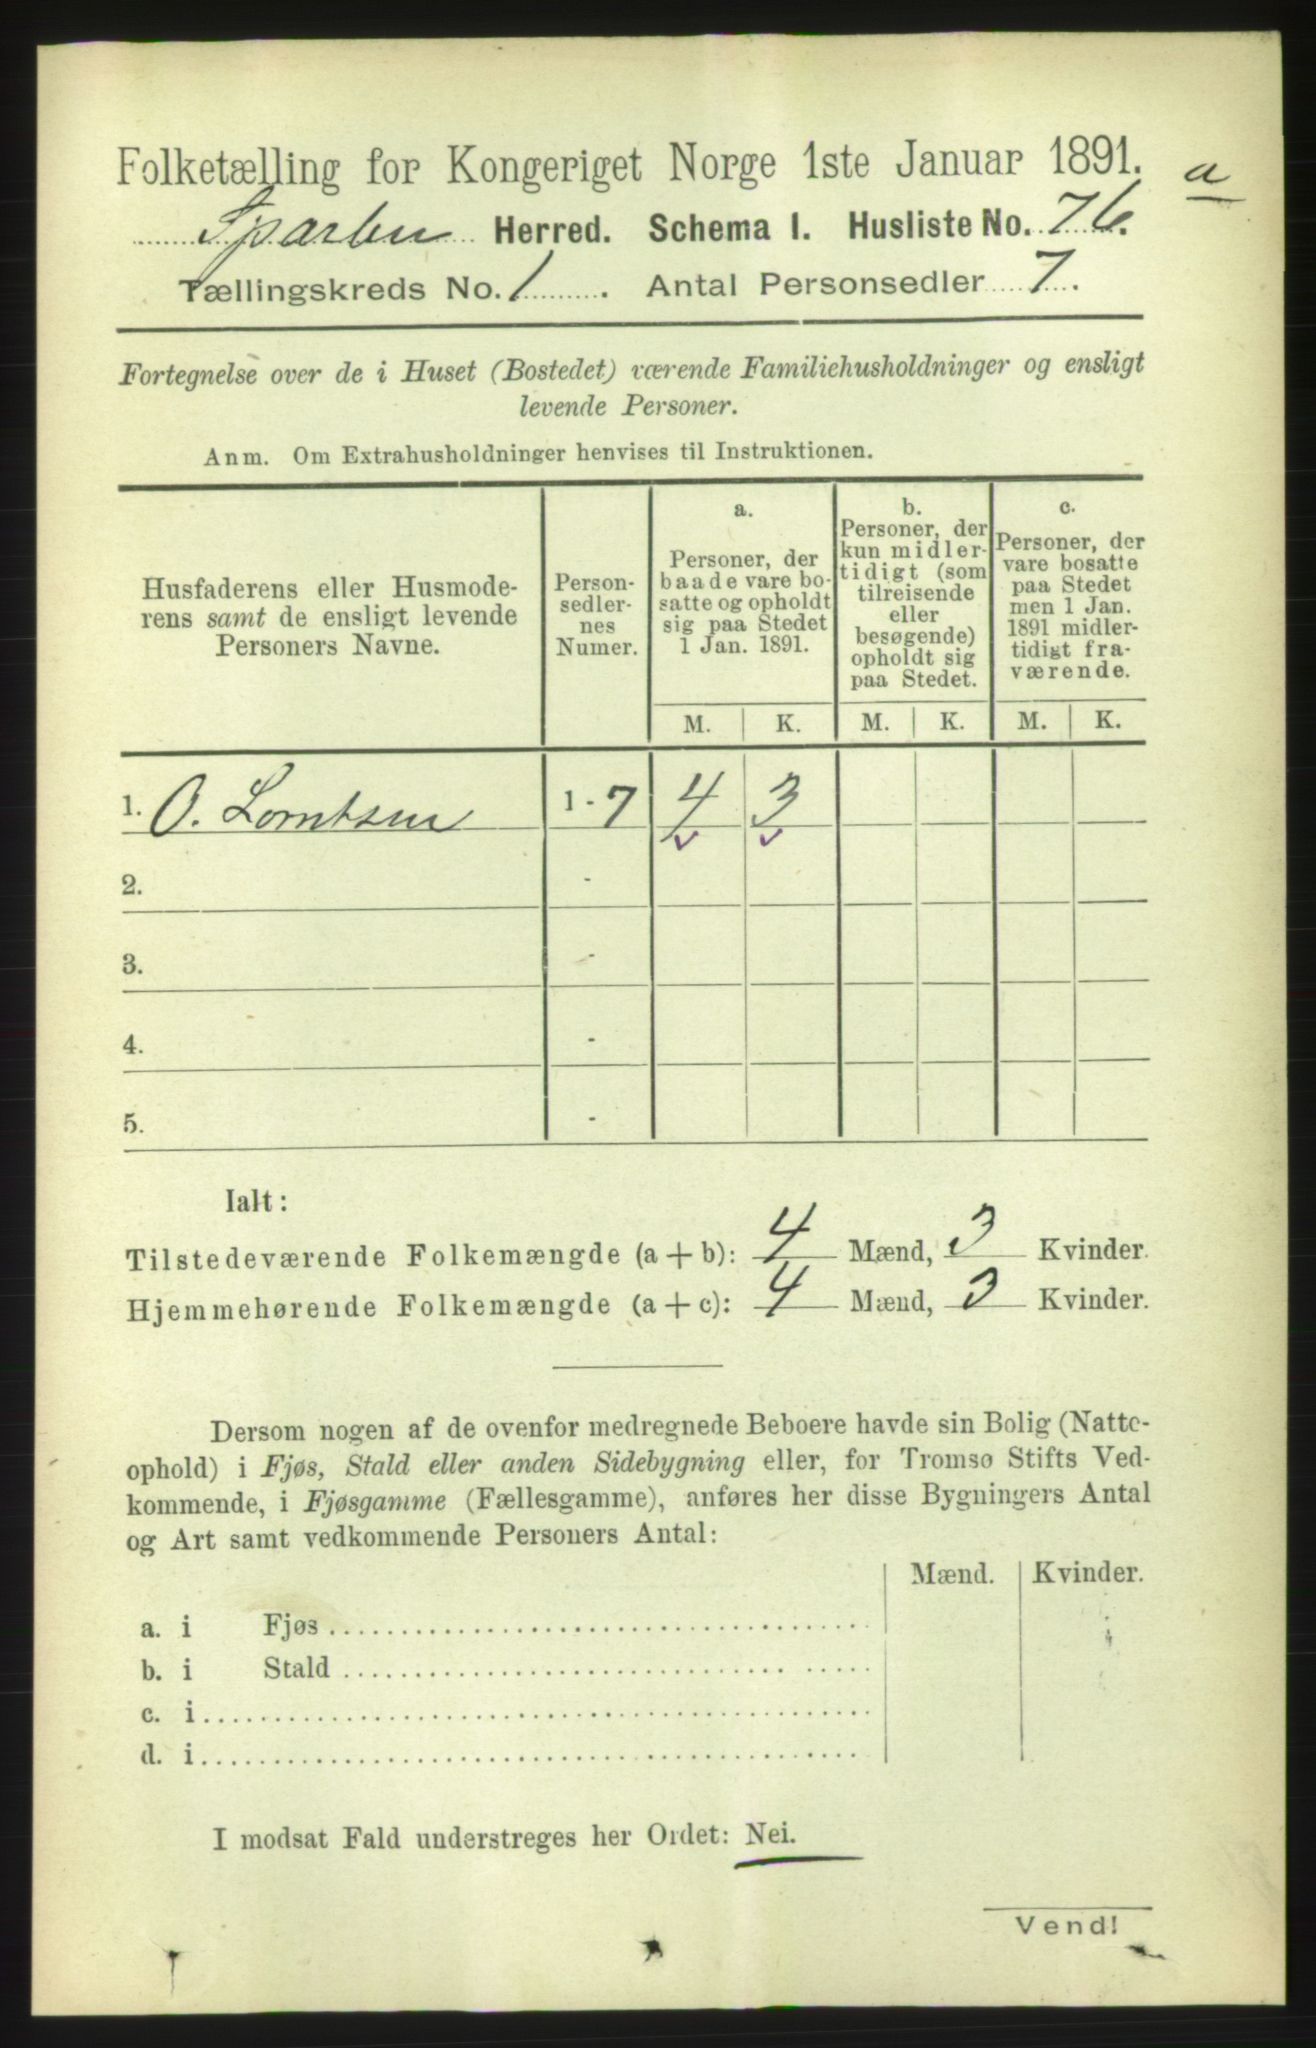 Folketælling for Kongeriget Norge 1ste Januar 1891.
a
Sparbu Herred. Schema I. Husliste No. 76.
Tællingskreds No. 1. Antal Personsedler 7.
Fortegnelse over de i Huset (Bostedet) værende Familiehusholdninger og ensligt
levende Personer.
Anm. Om Extrahusholdninger henvises til Instruktionen.
Husfaderens eller Husmode-
rens samt de ensligt levende
Personers Navne.
Person-
sedler-
nes
Numer.
a.
Personer, der
baade vare bo-
satte og opholdt
sig paa Stedet
1 Jan. 1891.
b.
Personer, der
kun midler-
tidigt (som
tilreisende
eller
besøgende)
opholdt sig
paa Stedet.
c.
Personer, der
vare bosatte
paa Stedet
men 1 Jan.
1891 midler-
tidigt fra-
værende.
M. K. M. K. M. K.
1. O. Lorntsen 1 - 7 4 3
2. -
3. -
4. -
5. -
Ialt:
Tilstedeværende Folkemængde (a + b): 4 Mænd, 3 Kvinder.
Hjemmehørende Folkemængde (a + c): 4 Mænd, 3 Kvinder.
Dersom nogen af de ovenfor medregnede Beboere havde sin Bolig (Natte-
ophold) i Fjøs, Stald eller anden Sidebygning eller, for Tromsø Stifts Ved-
kommende, i Fjøsgamme (Fællesgamme), anføres her disse Bygningers Antal
og Art samt vedkommende Personers Antal:
Mænd. Kvinder.
a. i Fjøs
b. i Stald
c. i
d. i
I modsat Fald understreges her Ordet: Nei.
Vend!